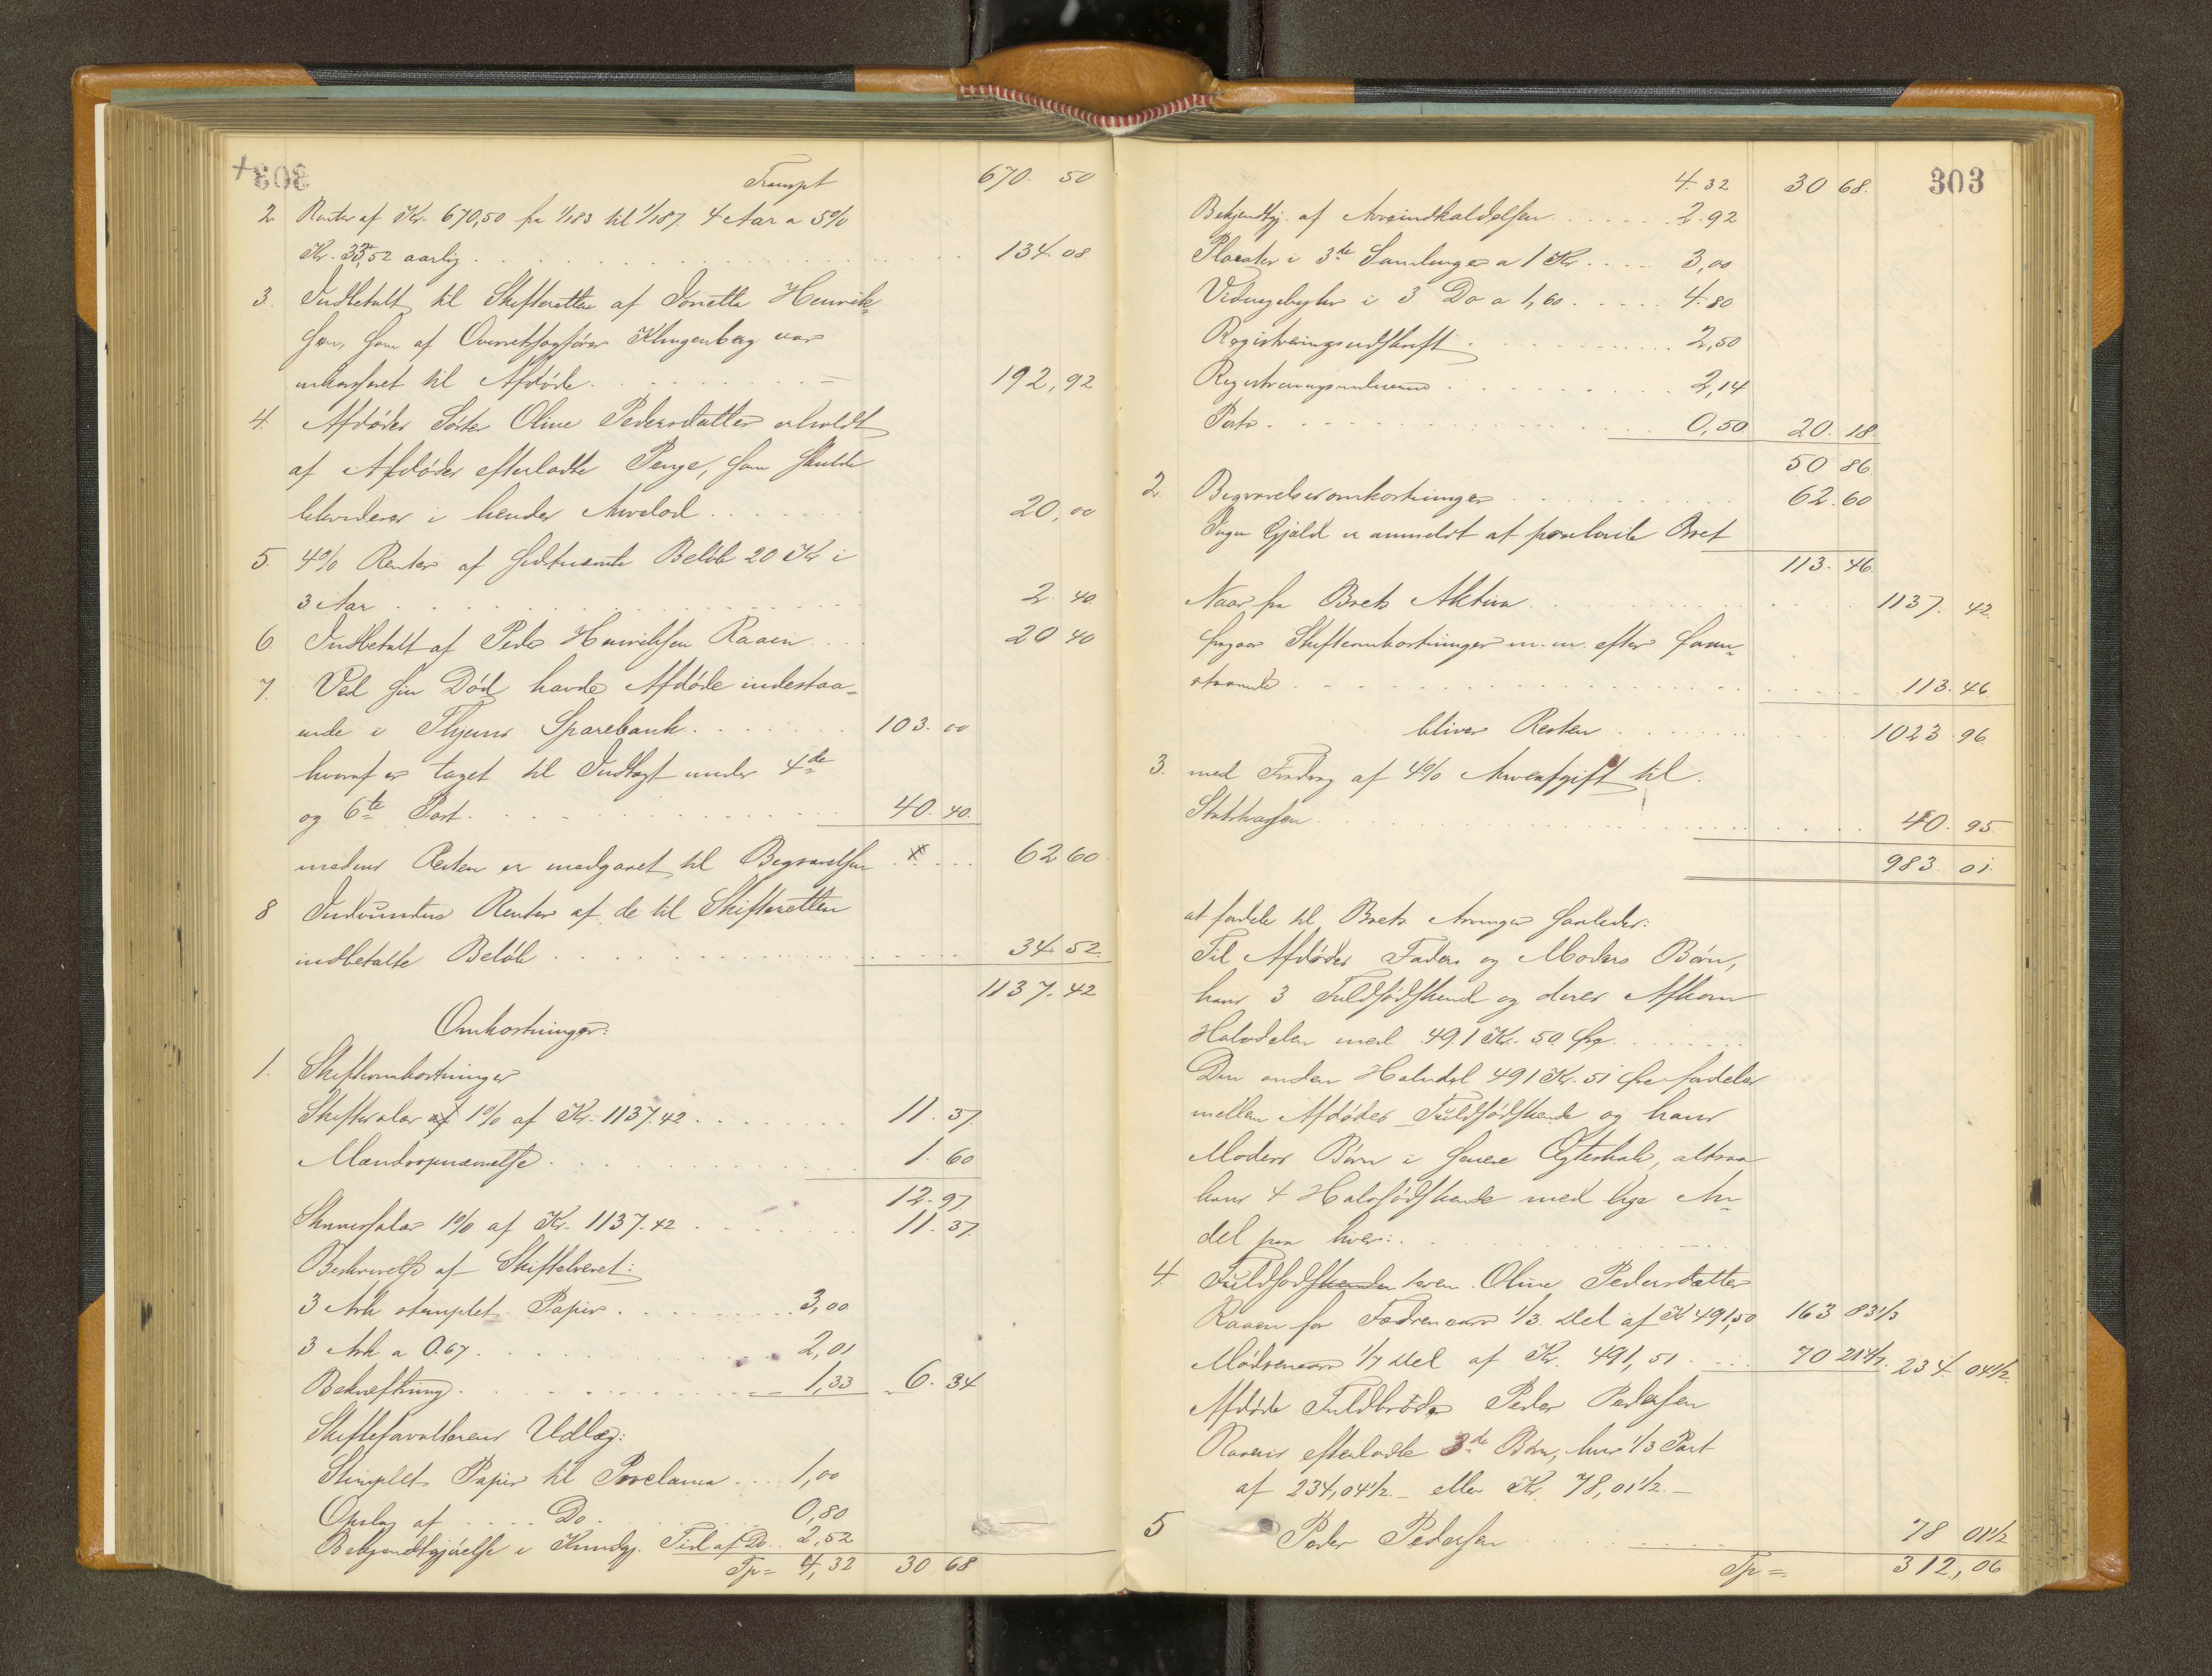 303
Transpt 670. 50
2 Renter af Kr. 670,50 fra 1/1 83 til 1/1 87. 4 Aar a 5%
Kr. 33,52 aarlig . . . 134. 08
3. Indbetalt til Skifteretten af Henrik-
sen, som af Overretssagfører Klingenberg var
inkasseret til Afdøde. . . 192,92
4. Afdødes Søster Oline Pedersdatter erholdt
af Afdødes efterladte Penge, som skulde
likvideres i hendes Arvelod . . . 20,00
5. 4% Renter af sidstnævnte Beløb 20 Kr i
3 Aar . . . 2. 40
6. Indbetalt af Peder Henriksen Raaen . . . 20 40
7. Ved sin Død havde Afdøde indestaa-
ende i Sparebank . . . 103. 00
hvoraf er taget til Indtægt under 4de
og 6te Post . . . 40. 40.
medens Resten er medgaaet til Begravelsen . . . 62 60
8 Indvundne Renter af de til Skifteretten
indbetalte Beløb . . . 34. 52.
1137. 42
Omkostninger:
1. Skifteomkostninger
Skiftesalær af 1% af Kr. 1137.42 . . . 11. 37.
Mændsopnævnelse . . . 1. 60
12. 97.
Skriversalær 1% af Kr. 1137.42 . . . 11. 37.
Beskrivelse af Skiftebrevet:
3 Ark stemplet Papir . . . 3,00
3 Ark a 0.67 . . . 2,01
Bekræftning . . . 1,33 6. 34
Skifteforvalterens Udlæg:
Stemplet Papir til Proclama . . . 1,00
Opslag af . . . Do . . . 0,80
Bekjendtgjørelse i Kundgj. Tid af Do . . 2,52
Tp = 4,32 30 68
303
4. 32 30 68.
Bekjendtgj. af Arveindkaldelsen . . . 2. 92
Placater i 3de Samlinger a 1 Kr . . . 3,00
i 3 Do a 1,60 . . . 4. 80
Registreringsudskrift . . . 2,50
. . . 2,14
Porto . . . 0,50 20. 18
50 86.
2. Begravelsesomkostninger . . . 62. 60
Ingen Gjæld er anmeldt at paahvile Boet
113. 46.
Naar fra Boets Aktiva . . . 1137. 42.
fragaar Skifteomkostninger m. m. efter foran-
staaende . . . 113. 46.
bliver Resten . . . 1023. 96.
3. med Fradrag af 4% Arveafgift til
Statskassen . . . 40. 95.
983. 01.
at fordele til Boets Arvinger saaledes:
Til Afdødes Faders og Moders Børn,
hans 3 Fuldsødskende og deres Afkom
Halvdelen med 491 Kr. 50 Øre . . .
Den anden Halvdel 491 Kr. 51 Øre fordeles
mellem Afdødes Fuldsødskende og hans
Moders Børn i senere Ægteskab, altsaa
hans 4 Halvsødskende med lige An-
del paa hver: . . .
4 Fuldsødskende Oline Pedersdatter
Raaen for Fædrenearv 1/3 Del af Kr 491,50 163 83 1/3
Mødrenearv 1/7 Del af Kr. 491,51 . . . 70 21 4/7. 234. 04 1/2.
Afdøde Fuldbroder Peder Pedersen
Raaens efterladte 3de Børn, hver 1/3 Part
af 234,04 1/2. - eller Kr. 78,01 1/2. -
5 Peder Pedersen . . . 78 01 1/2
Tp = 312,06